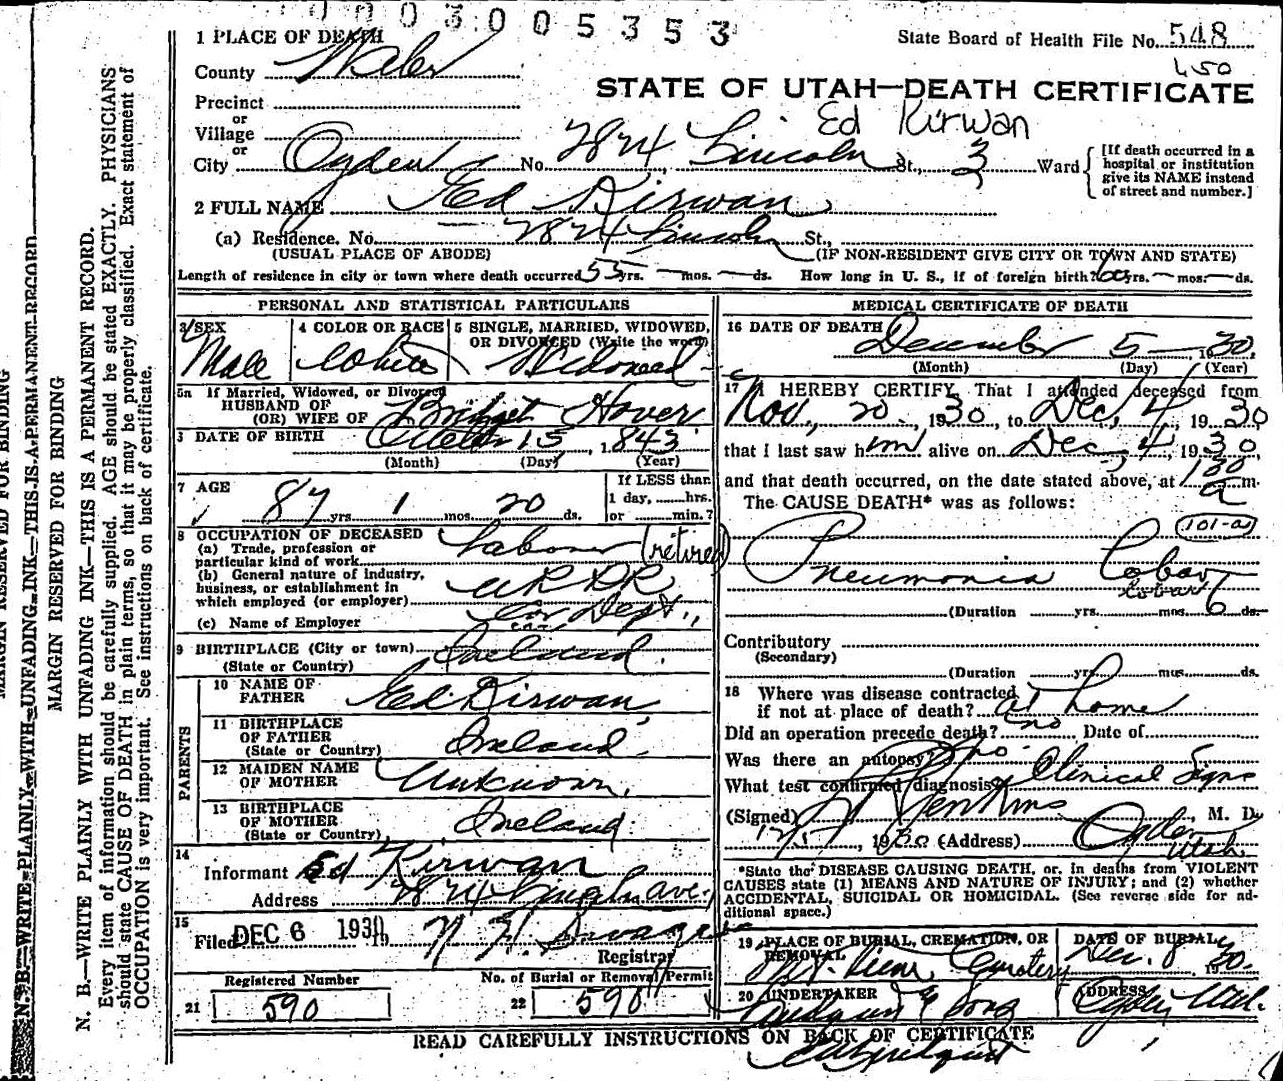 0003005353
State Board of Health File No. 548
450
1 PLACE OF DEATH
County Weber
STATE OF UTAH—DEATH CERTIFICATE
Precinct
or
Village
Ed Kirwan
or
City Ogden No. 2874 Lincoln St., 3 Ward
[If death occurred in a hospital or institution give its NAME instead of street and number.]
2 FULL NAME Ed Kirwan
(a) Residence. No. 2874 Lincoln St.,
(USUAL PLACE OF ABODE) (IF NON-RESIDENT GIVE CITY OR TOWN AND STATE)
Length of residence in city or town where death occurred 55 yrs. — mos. — ds. How long in U. S., if of foreign birth? 60 yrs. — mos. — ds.
PERSONAL AND STATISTICAL PARTICULARS
3 SEX
Male
4 COLOR OR RACE
White
5 SINGLE, MARRIED, WIDOWED,
OR DIVORCED (Write the word)
5a If Married, Widowed, or Divorced
HUSBAND OF
(OR) WIFE OF Bridget Hover
6 DATE OF BIRTH October 15, 1843
(Month) (Day) (Year)
7 AGE
87 yrs. 1 mos. 20 ds.
If LESS than
1 day, ...... hrs.
or ...... min.?
8 OCCUPATION OF DECEASED
(a) Trade, profession or
particular kind of work Laborer (retired)
(b) General nature of industry,
business, or establishment in
which employed (or employer)
(c) Name of Employer Dept.,
9 BIRTHPLACE (City or town) Ireland.
(State or Country)
PARENTS
10 NAME OF
FATHER Ed. Kirwan
11 BIRTHPLACE
OF FATHER
(State or Country) Ireland.
12 MAIDEN NAME
OF MOTHER Unknown.
13 BIRTHPLACE
OF MOTHER
(State or Country) Ireland.
14
Informant Ed Kirwan
Address 2874 Lincoln ave.
15
Filed DEC 6 1930
Registrar
Registered Number
21 590
No. of Burial or Removal Permit
22 590
MEDICAL CERTIFICATE OF DEATH
16 DATE OF DEATH
December 5 — 1930
(Month) (Day) (Year)
17 I HEREBY CERTIFY, That I attended deceased from
Nov. 20, 1930, to Dec. 4, 1930
that I last saw him alive on Dec. 4, 1930,
and that death occurred, on the date stated above, at 130 a m.
The CAUSE DEATH* was as follows:
101-a
Pneumonia Lobar
Lobar
(Duration yrs. mos. 6 ds.
Contributory
(Secondary)
(Duration yrs. mos. ds.
18 Where was disease contracted
if not at place of death? at home
Did an operation precede death? no Date of
Was there an autopsy? no.
What test confirmed diagnosis? Clinical Signs
(Signed) Jenkins, M. D.
12/5, 1930 (Address) Ogden
Utah
*State the DISEASE CAUSING DEATH, or, in deaths from VIOLENT
CAUSES state (1) MEANS AND NATURE OF INJURY; and (2) whether
ACCIDENTAL, SUICIDAL OR HOMICIDAL. (See reverse side for ad-
ditional space.)
19 PLACE OF BURIAL, CREMATION, OR
REMOVAL
Cemetery
DATE OF BURIAL
Dec. 8 1930.
20 UNDERTAKER
& Sons
ADDRESS
Ogden Utah.
READ CAREFULLY INSTRUCTIONS ON BACK OF CERTIFICATE
MARGIN RESERVED FOR BINDING
N. B.—WRITE PLAINLY WITH UNFADING INK—THIS IS A PERMANENT RECORD
MARGIN RESERVED FOR BINDING
N. B.—WRITE PLAINLY WITH UNFADING INK—THIS IS A PERMANENT RECORD.
Every item of information should be carefully supplied. AGE should be stated EXACTLY. PHYSICIANS
should state CAUSE OF DEATH in plain terms, so that it may be properly classified. Exact statement of
OCCUPATION is very important. See instructions on back of certificate.